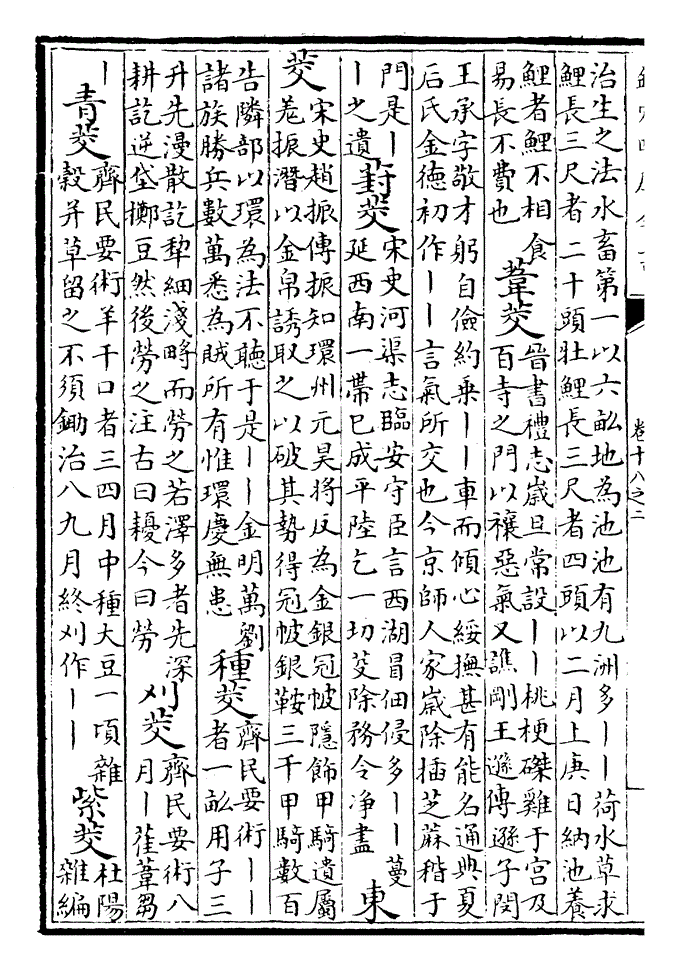 卷十八之二
治生之法水畜第一以六畝地為池池有九洲多丨丨荷水草求
鯉長三尺者二十頭牡鯉長三尺者四頭以二月上庚日納池養
鯉者鯉不相食
易長不費也
葦茭
晉書禮志歲旦常設丨丨桃梗磔雞于宮及
百寺之門以禳惡氣又譙剛王遜傳遜子閔
王承字敬才躬自儉約乗丨丨車而傾心綏撫甚有能名通典夏
后氏金德初作丨丨言氣所交也今京師人家歲除插芝蔴稭于
門是丨
丨之遺
葑茭
宋史河渠志臨安守臣言西湖冒佃侵多丨丨蔓
延西南一帶已成平陸乞一切芟除務令净盡
東
茭
宋史趙振傳振知環州元昊將反為金銀冠帔隱飾甲騎遺屬
羗振潛以金帛誘取之以破其勢得冠帔銀鞍三千甲騎數百
告隣部以環為法不聽于是丨丨金明萬劉
諸族勝兵數萬悉為賊所有惟環慶無患
種茭
齊民要術丨丨
者一畝用子三
升先漫散訖犂細淺㽟而勞之若澤多者先深
耕訖逆垡擲豆然後勞之注古曰耰今曰勞
刈茭
齊民要術八
月丨萑葦芻
丨
青茭
齊民要術羊千口者三四月中種大豆一頃雜
穀并草留之不須鋤治八九月終刈作丨丨
紫茭
杜陽
雜編